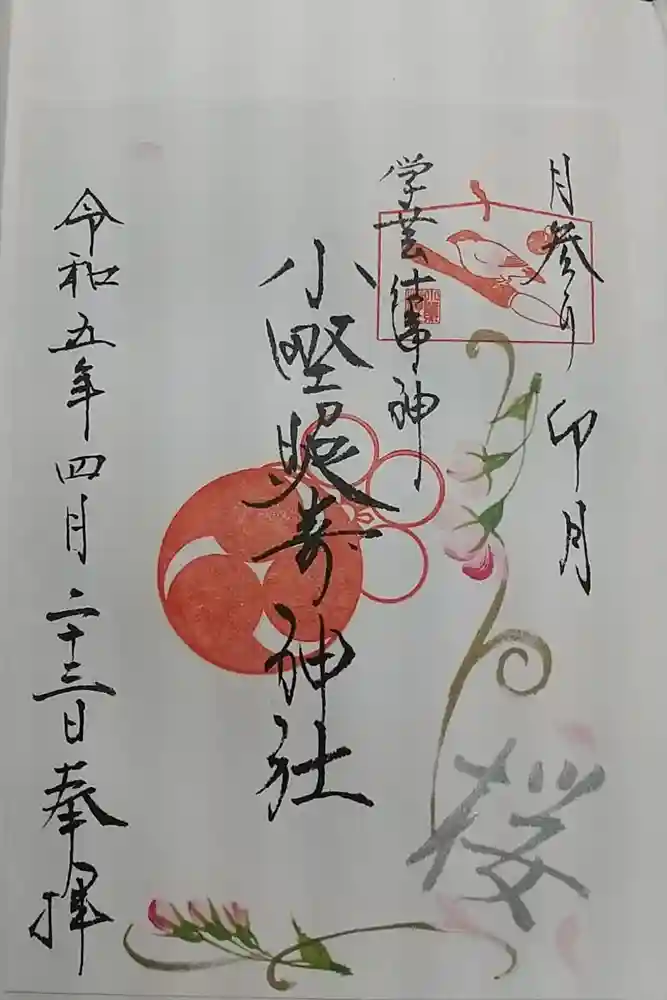 月参り 卯月
学芸仕事神
小野照崎神社
令和五年四月二十三日奉拝
桜